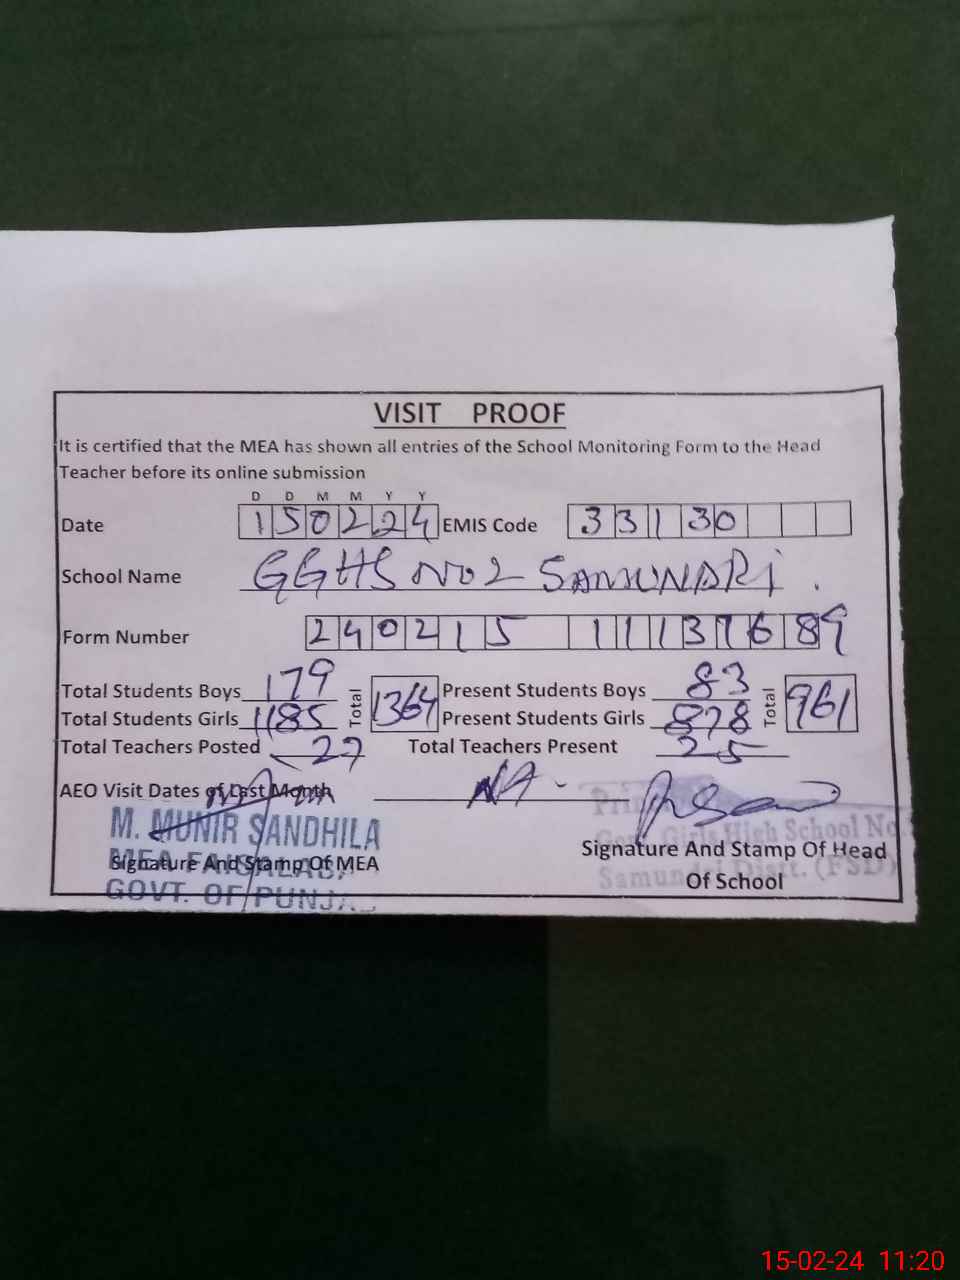 VISIT PROOF
It is certified that the MEA has shown all entries of the School Monitoring Form to the Head
Teacher before its online submission
D D M M Y Y
Date 150224 EMIS Code 33130
School Name GGHS NO 2 SAMUNDRI.
Form Number 240215 11137689
Total Students Boys 179 Total 1364 Present Students Boys 83 Total 961
Total Students Girls 1185 Present Students Girls 878
Total Teachers Posted 27 Total Teachers Present 25
AEO Visit Dates of Last Month NA -
M. MUNIR SANDHILA
MEA FAISALABAD
GOVT. OF PUNJAB
Signature And Stamp Of MEA
Govt. Girls High School No
Samundri Distt. (FSD)
Signature And Stamp Of Head
Of School
15-02-24 11:20